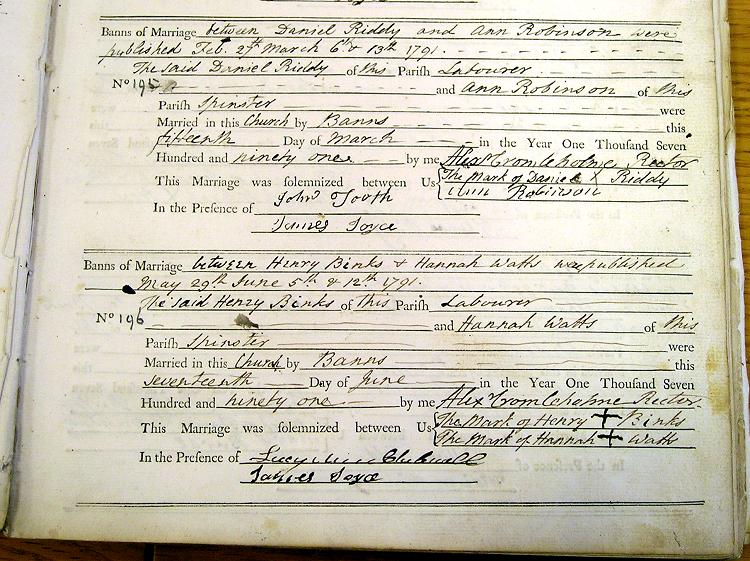 Banns of Marriage between Daniel Riddy and Ann Robinson were
published Feb. 27th March 6th & 13th 1791.
The said Daniel Riddy of this Parish Labourer
No 195 and Ann Robinson of this
Parish Spinster were
Married in this Church by Banns this
fifteenth Day of March in the Year One Thousand Seven
Hundred and ninety one by me Alex Cromleholme Rector
This Marriage was solemnized between Us The Mark of Daniel X Riddy
Ann Robinson
In the Presence of John Tooth
James Joyce
Banns of Marriage between Henry Binks & Hannah Watts was published
May 29th June 5th & 12th 1791.
The said Henry Binks of this Parish Labourer
No 196 and Hannah Watts of this
Parish Spinster were
Married in this Church by Banns this
seventeenth Day of June in the Year One Thousand Seven
Hundred and ninety one by me Alex Cromleholme Rector
This Marriage was solemnized between Us The Mark of Henry + Binks
The Mark of Hannah + Watts
In the Presence of Lucy
James Joyce